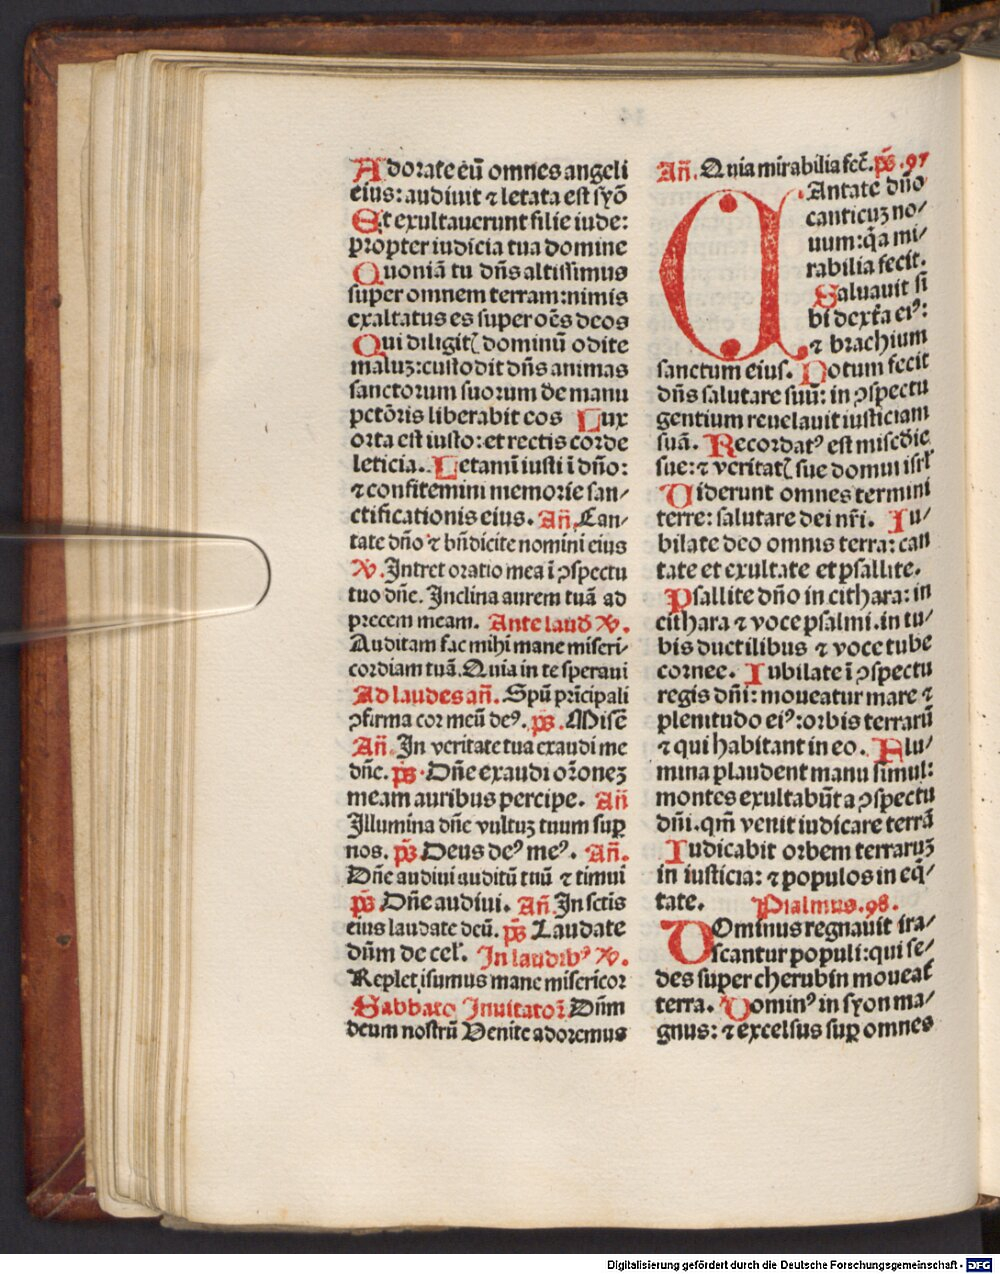 Adorate eū omnes angeli
eius: audiuit ⁊ letata est syō
Et exultauerunt filie iude:
propter iudicia tua domine
Quoniā tu dn̄s altissimus
super omnem terram: nimis
exaltatus es super oēs deos
Qui diligitꝭ dominū odite
maluꝫ: custodit dn̄s animas
sanctorum suorum de manu
pctōris liberabit eos Lux
orta est iusto: et rectis corde
leticia. Letamī iusti ī dn̄o:
⁊ confitemini memorie san/
ctificationis eius. An̄. Can/
tate dn̄o ⁊ bn̄dicite nomini eius
℣. Intret oratio mea ī ꝯspectu
tuo dn̄e. Inclina aurem tuā ad
precem meam. Ante laud̄ ℣.
Auditam fac mihi mane miseri-
cordiam tuā. Quia in te speraui
Ad laudes an̄. Spū prīcipali
ꝯfirma cor meū deꝰ. ps̄. Misē
An̄. In veritate tua exaudi me
dn̄e. ps̄. Dn̄e exaudi or̄oneꝫ
meam auribus percipe. An̄
Illumina dn̄e vultuꝫ tuum suꝑ
nos. ps̄. Deus deꝰ meꝰ. An̄.
Dn̄e audiui auditū tuū ⁊ timui
ps̄ Dn̄e audiui. An̄. In sctīs
eius laudate deū. ps̄ Laudate
dūm de cel'. In laudibꝰ ℣.
Repleti sumus mane misericor
Sabbato Inuitatoꝝ Dūm
deum nostrū Venite adoremus
An̄. Quia mirabilia fec̄. ps̄. 97
CAntate dn̄o
canticuꝫ no/
uum: q̄a mi/
rabilia fecit.
Saluauit si
bi dext̄a eiꝰ:
⁊ brachium
sanctum eius. Notum fecit
dn̄s salutare suū: in ꝯspectu
gentium reuelauit iusticiam
suā. Recordatꝰ est misc̄die
sue: ⁊ veritatꝭ sue domui isrl'
Uiderunt omnes termini
terre: salutare dei nr̄i. Iu/
bilate deo omnis terra: can
tate et exultate et psallite.
Psallite dn̄o in cithara: in
cithara ⁊ voce psalmi. in tu/
bis ductilibus ⁊ voce tube
cornee. Iubilate ī ꝯspectu
regis dn̄i: moueatur mare ⁊
plenitudo eiꝰ: orbis terrarū
⁊ qui habitant in eo. Flu/
mina plaudent manu simul:
montes exultabūt a ꝯspectu
dn̄i. qm̄ venit iudicare terrā
Iudicabit orbem terraruꝫ
in iusticia: ⁊ populos in eq̄/
tate. Psalmus. 98.
DOminus regnauit ira/
scantur populi: qui se/
des super cherubin moueat̄
terra. Dominꝰ in syon ma/
gnus: ⁊ excelsus suꝑ omnes
Digitalisierung gefördert durch die Deutsche Forschungsgemeinschaft - DFG